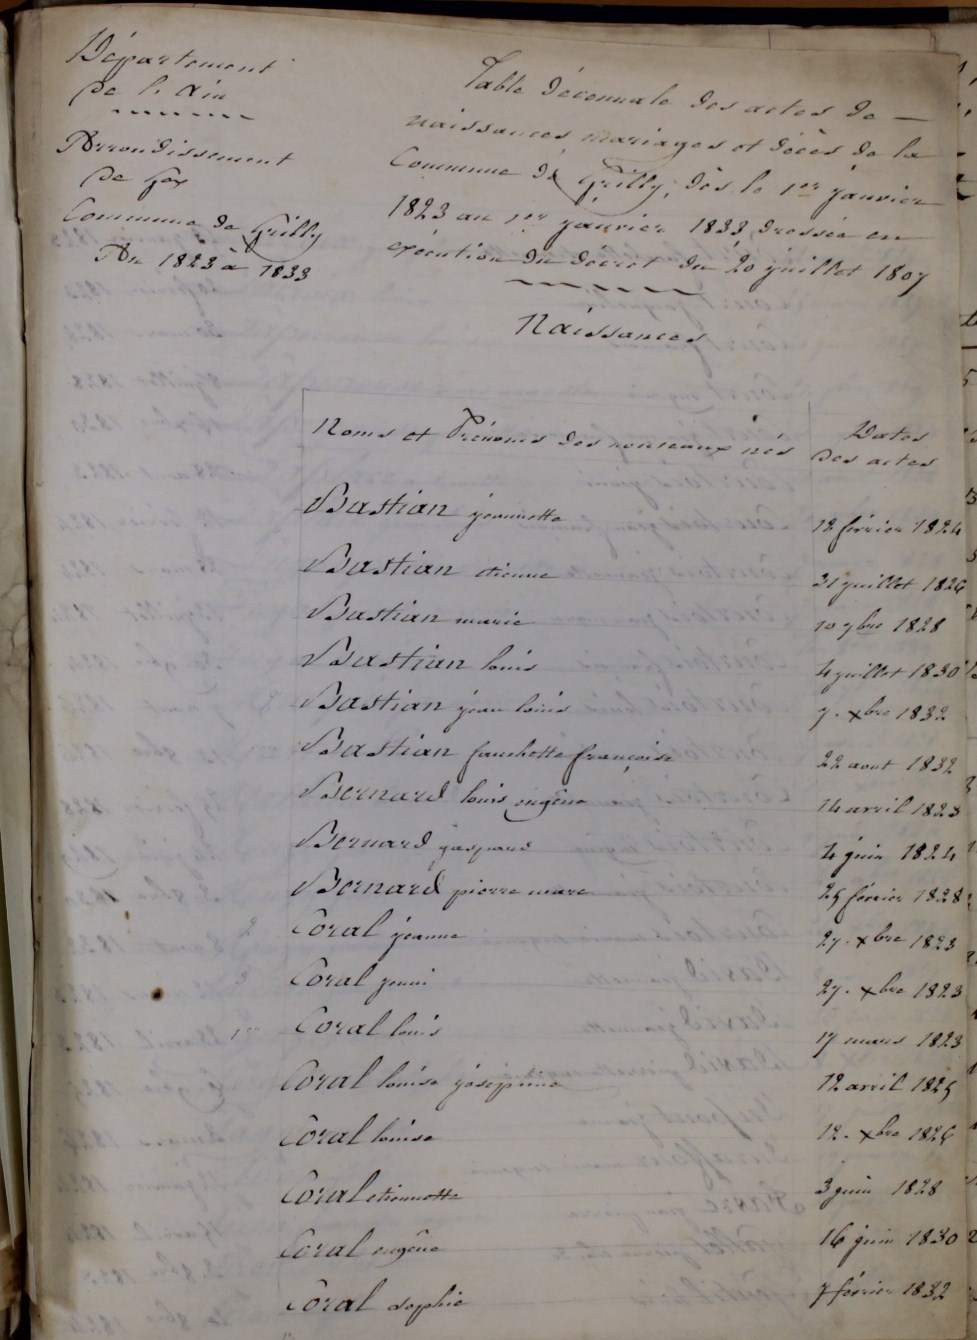 Département
de l'Ain
Arrondissement
de Gex
Commune de Grilly
An 1823 à 1833
Table décennale des actes de
naissances, mariages et décès de la
Commune de Grilly, dès le 1er janvier
1823 au 1er janvier 1833, dressée en
exécution du décret du 20 juillet 1807
Naissances
Noms et Prénoms des nouveaux nés
Dates
des actes
Bastian jeannette 12 février 1824
Bastian etienne 31 juillet 1826
Bastian marie 10 9bre 1828
Bastian louis 4 juillet 1830
Bastian jean louis 7. xbre 1832
Bastian fanchette françoise 22 aout 1832
Bernard louis eugène 14 avril 1823
Bernard gaspard 4 juin 1824
Bernard pierre marc 25 février 1828
2 Coral jeanne 27. xbre 1823
3 Coral jenni 27. xbre 1823
1er Coral louis 17 mars 1823
Coral louise joséphine 12 avril 1825
Coral louise 12. xbre 1826
Coral etiennette 3 juin 1828
Coral eugène 16 juin 1830
Coral sophie 7 février 1832